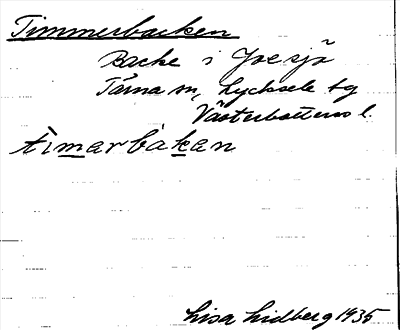 Timmerbacken
Backe i Joesjö
Tärna sn, Lycksele tg
Västerbottens l.
tìmarbàkan
Lisa Lidberg 1935